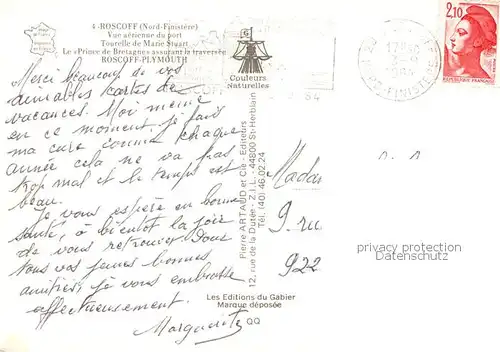 4 - ROSCOFF (Nord-Finistère)
Vue aérienne du port
Tourelle de Marie Stuart
Le «Prince de Bretagne» assurant la traversée
ROSCOFF-PLYMOUTH
Couleurs
Naturelles
Merci beaucoup de vos
aimables cartes de
vacances. Moi même
en ce moment je fais
ma cure comme chaque
année cela ne va pas
trop mal et le temps est
beau.
Je vous espère en bonne
santé, à bientôt la joie
de vous retrouver. Pour
tous vos jeunes bonnes
amitiés, je vous embrasse
affectueusement.
Marguerite
Pierre ARTAUD et Cie - Editeurs
12, rue de la Dutée - Z.I.L. - 44800 St-Herblain
Tél. (40) 46.02.24
Les Editions du Gabier
Marque déposée
2,10
REPUBLIQUE FRANÇAISE
17H
FINISTERE
Madam
9. ru
922
privacy protection
Datenschutz